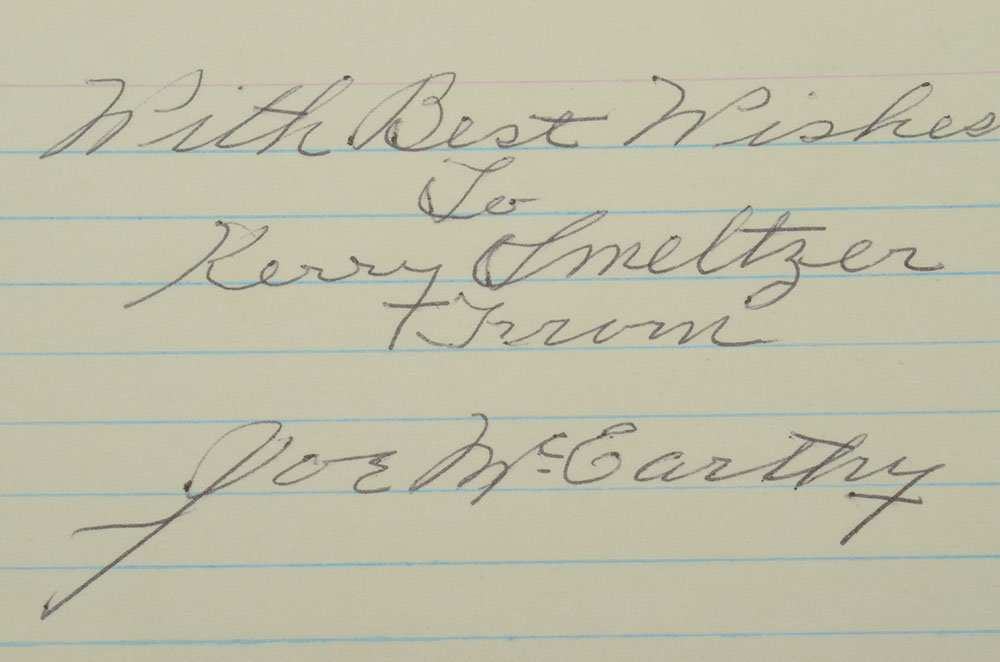 With Best Wishes
To
Kerry Smeltzer
From
Joe McCarthy